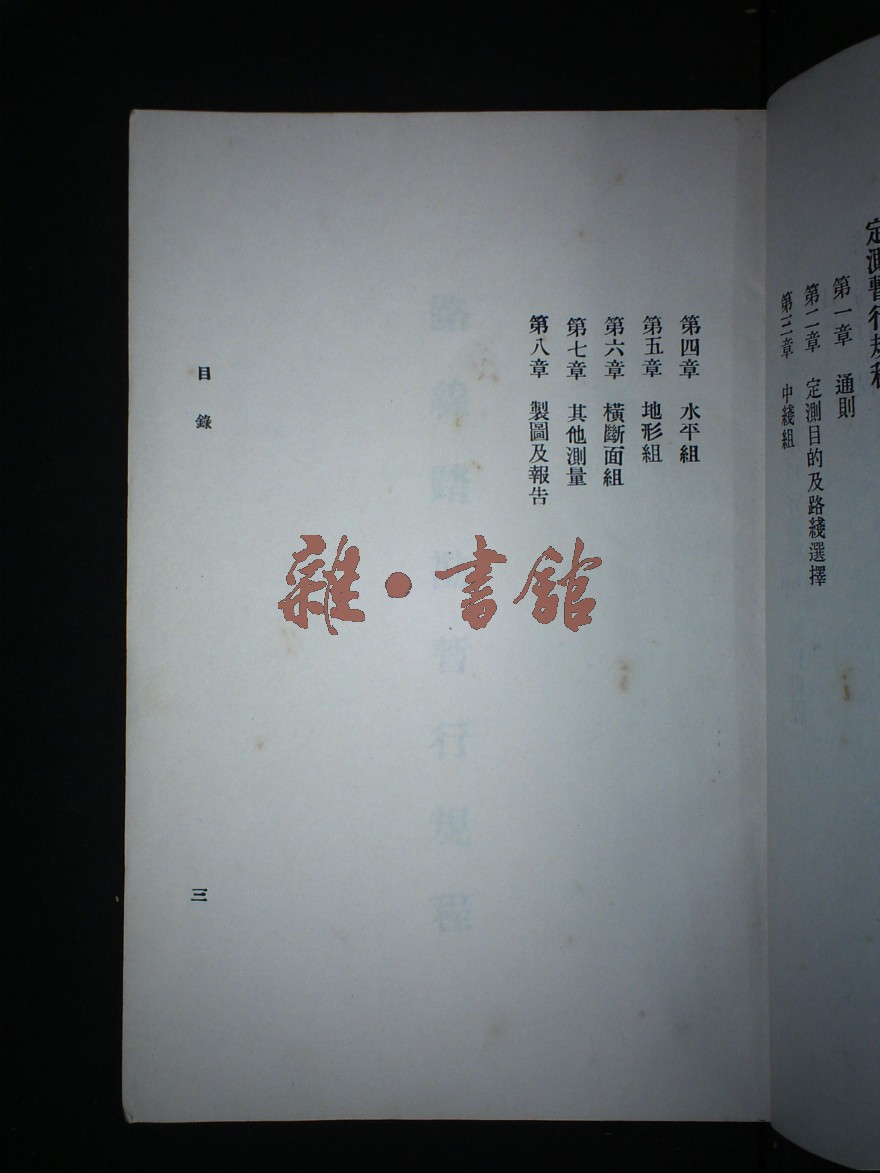 定測暫行規程
第一章 通則
第二章 定測目的及路綫選擇
第三章 中綫組
第四章 水平組
第五章 地形組
第六章 橫斷面組
第七章 其他測量
第八章 製圖及報告
目錄
三
雜·書館